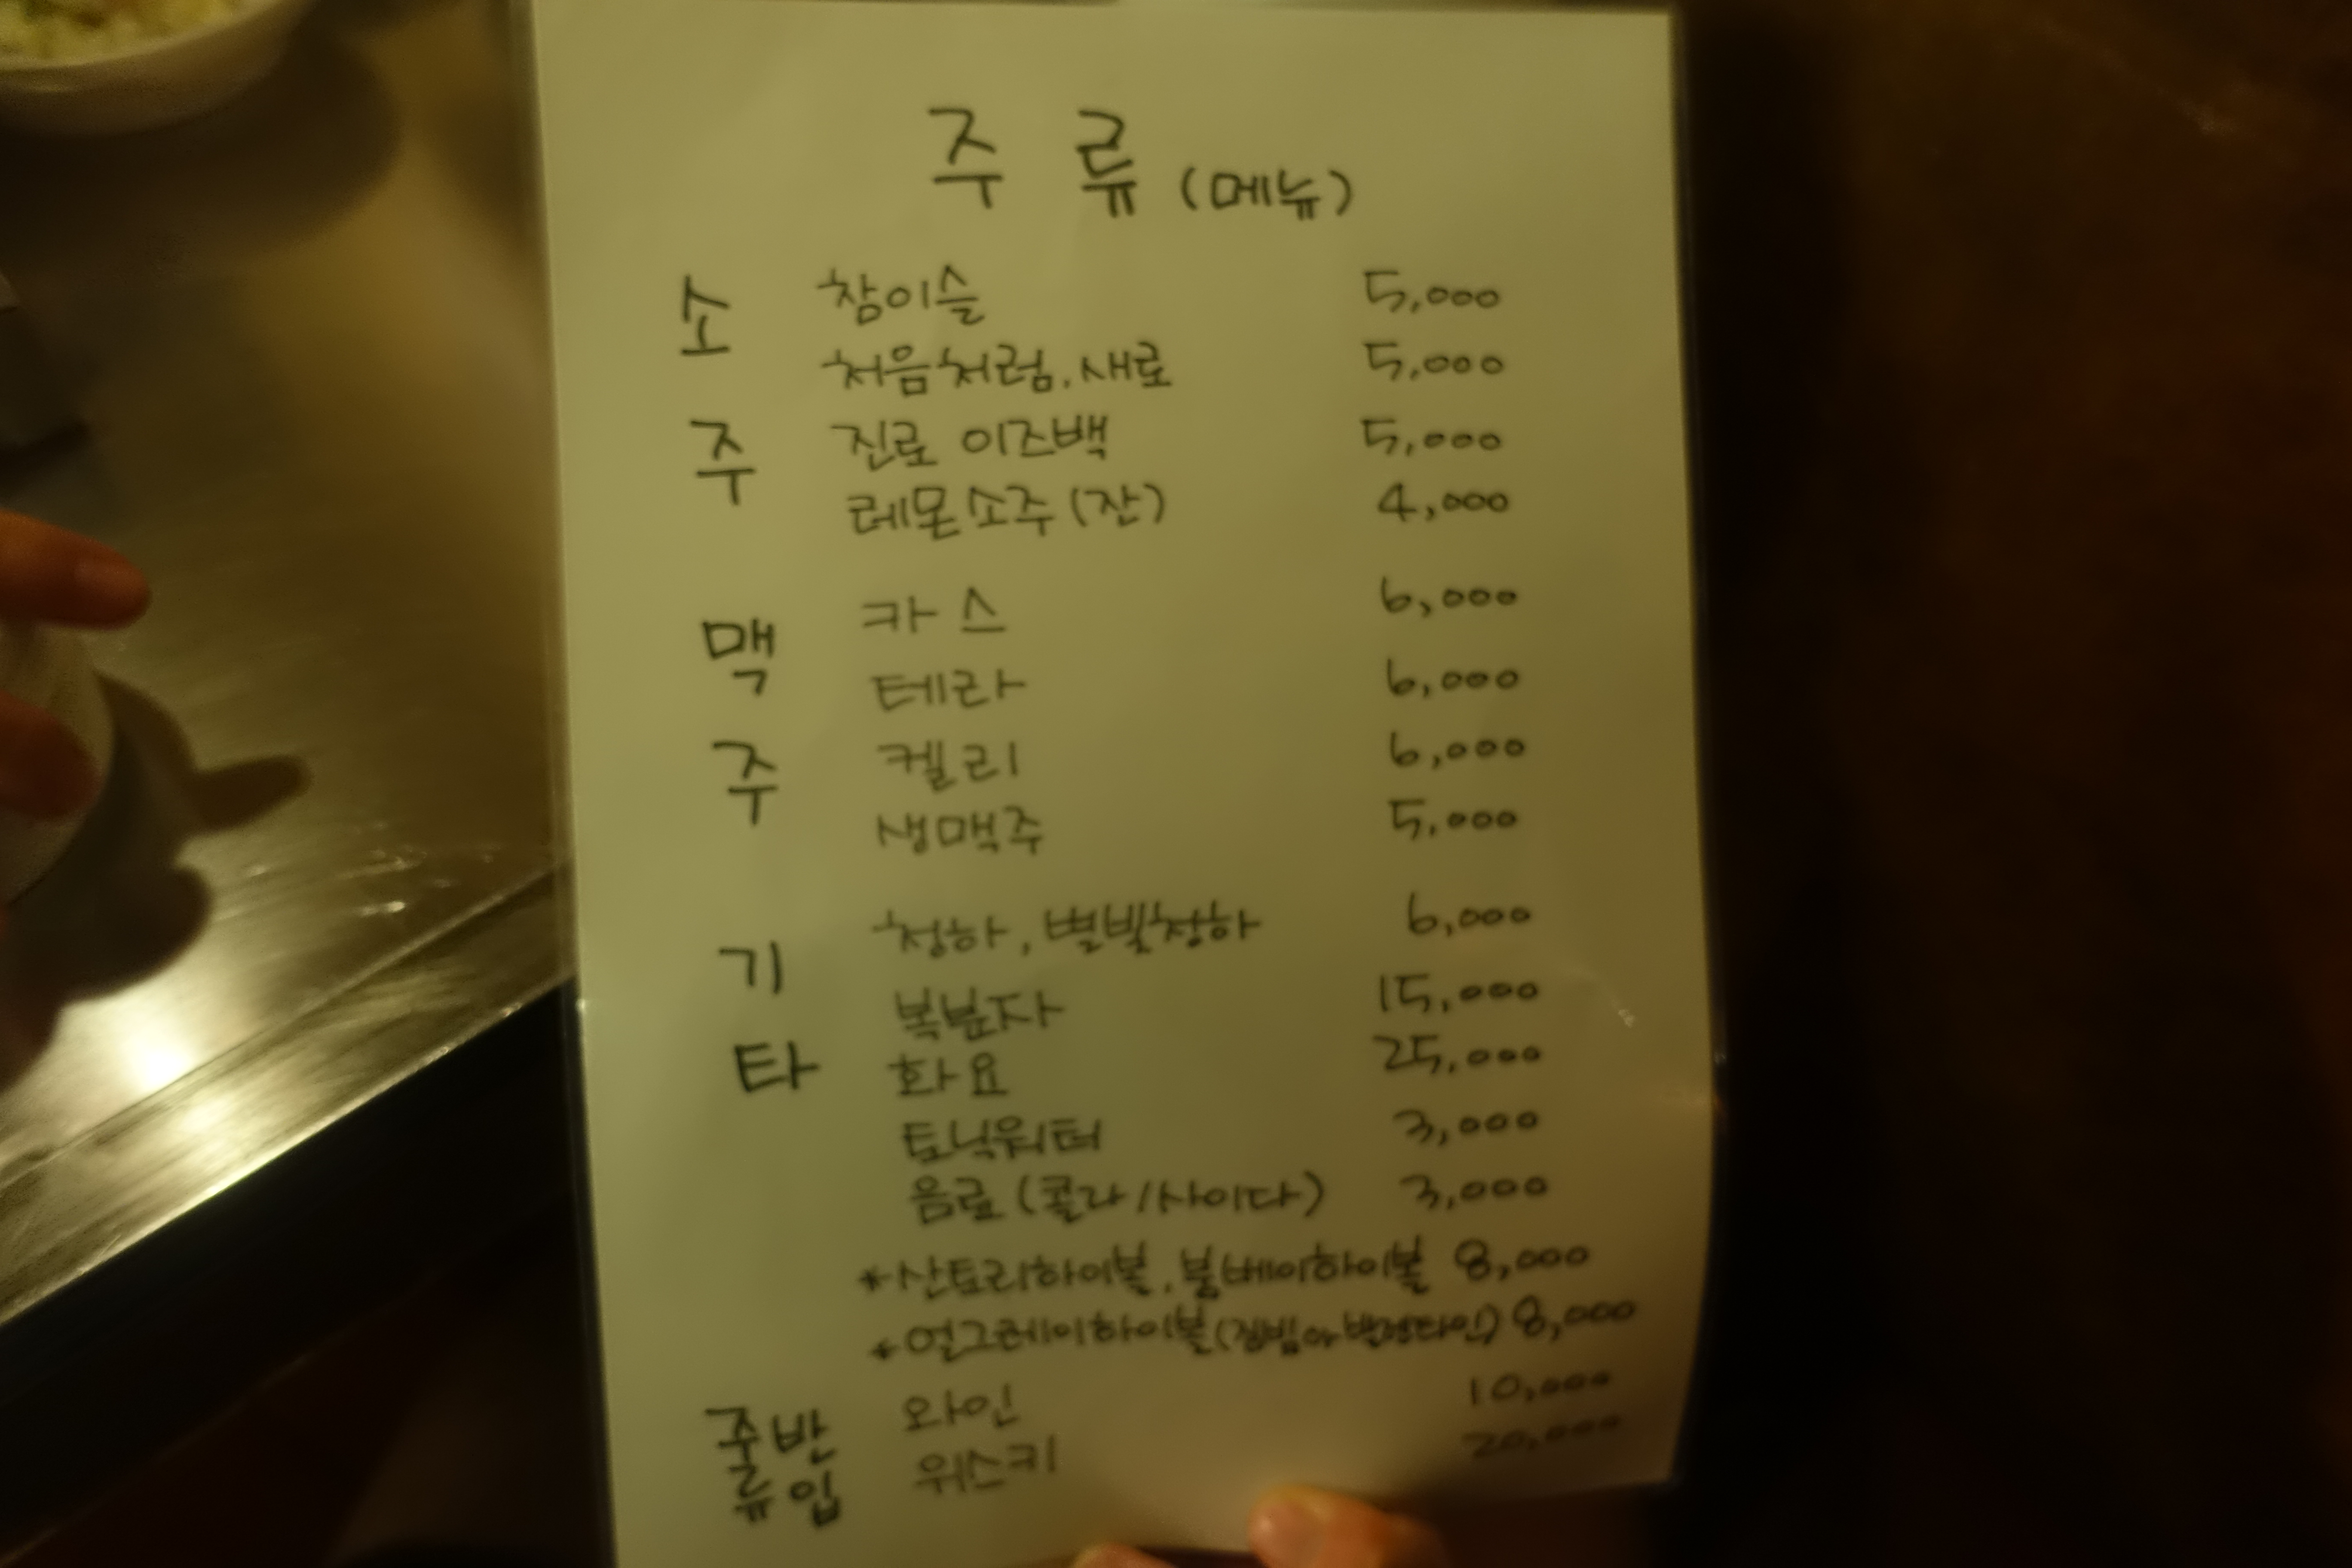 주 류 (메뉴)
소 주
참이슬 5,000
처음처럼, 새로 5,000
진로 이즈백 5,000
레몬소주 (잔) 4,000
맥 주
카스 6,000
테라 6,000
켈리 6,000
생맥주 5,000
기 타
청하, 별빛청하 6,000
복분자 15,000
화요 25,000
토닉워터 3,000
음료 (콜라/사이다) 3,000
*산토리하이볼, 봄베이하이볼 8,000
*얼그레이하이볼 (짐빔 or 발렌타인) 8,000
주류 반입
와인 10,000
위스키 20,000